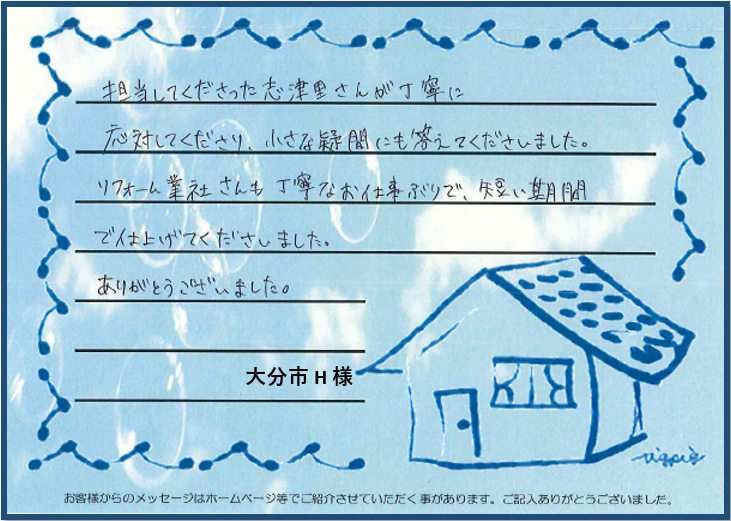 担当してくださった志津里さんが丁寧に
応対してくださり、小さな疑問にも答えてくださいました。
リフォーム業社さんも丁寧なお仕事ぶりで、短い期間
で仕上げてくださいました。
ありがとうございました。
大分市 H 様
お客様からのメッセージはホームページ等でご紹介させていただく事があります。ご記入ありがとうございました。